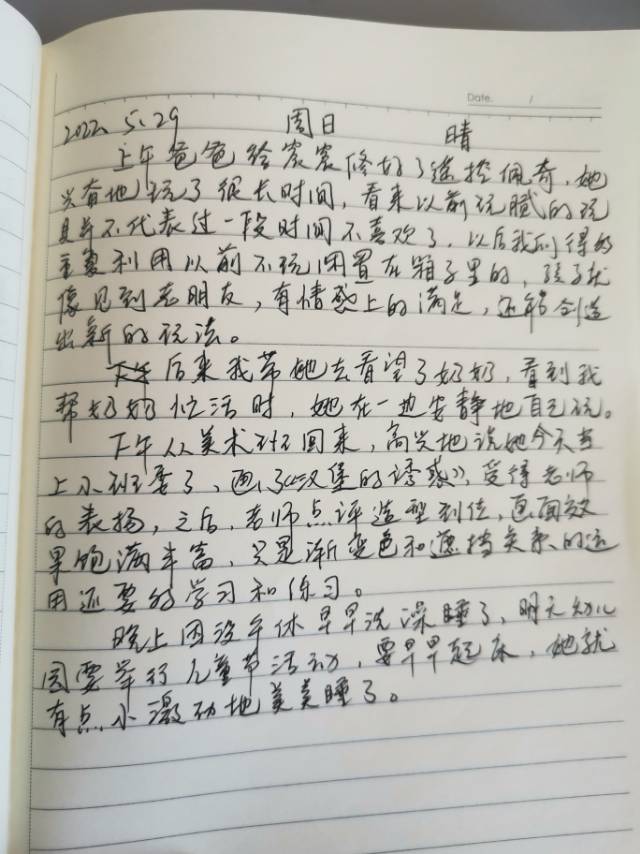 Date. /
2022. 5.29 周日 晴
上午爸爸给宸宸修好了遥控佩奇，她
兴奋地玩了很长时间，看来以前玩腻的玩
具并不代表过一段时间不喜欢了，以后我们得多
重复利用以前不玩闲置在箱子里的，孩子就
像见到老朋友，有情感上的满足，还能创造
出新的玩法。
后来我带她去看望了奶奶，看到我
帮奶奶忙活时，她在一边安静地自己玩。
下午从美术班回来，高兴地说她今天当
上小班委了，画了《汉堡的诱惑》，受得老师
的表扬，之后，老师点评造型到位，画面效
果饱满丰富，只是渐变色和遮挡关系的运
用还要的学习和练习。
晚上因没午休早早洗澡睡了，明天幼儿
园要举行儿童节活动，要早早起床，她就
有点小激动地美美睡了。